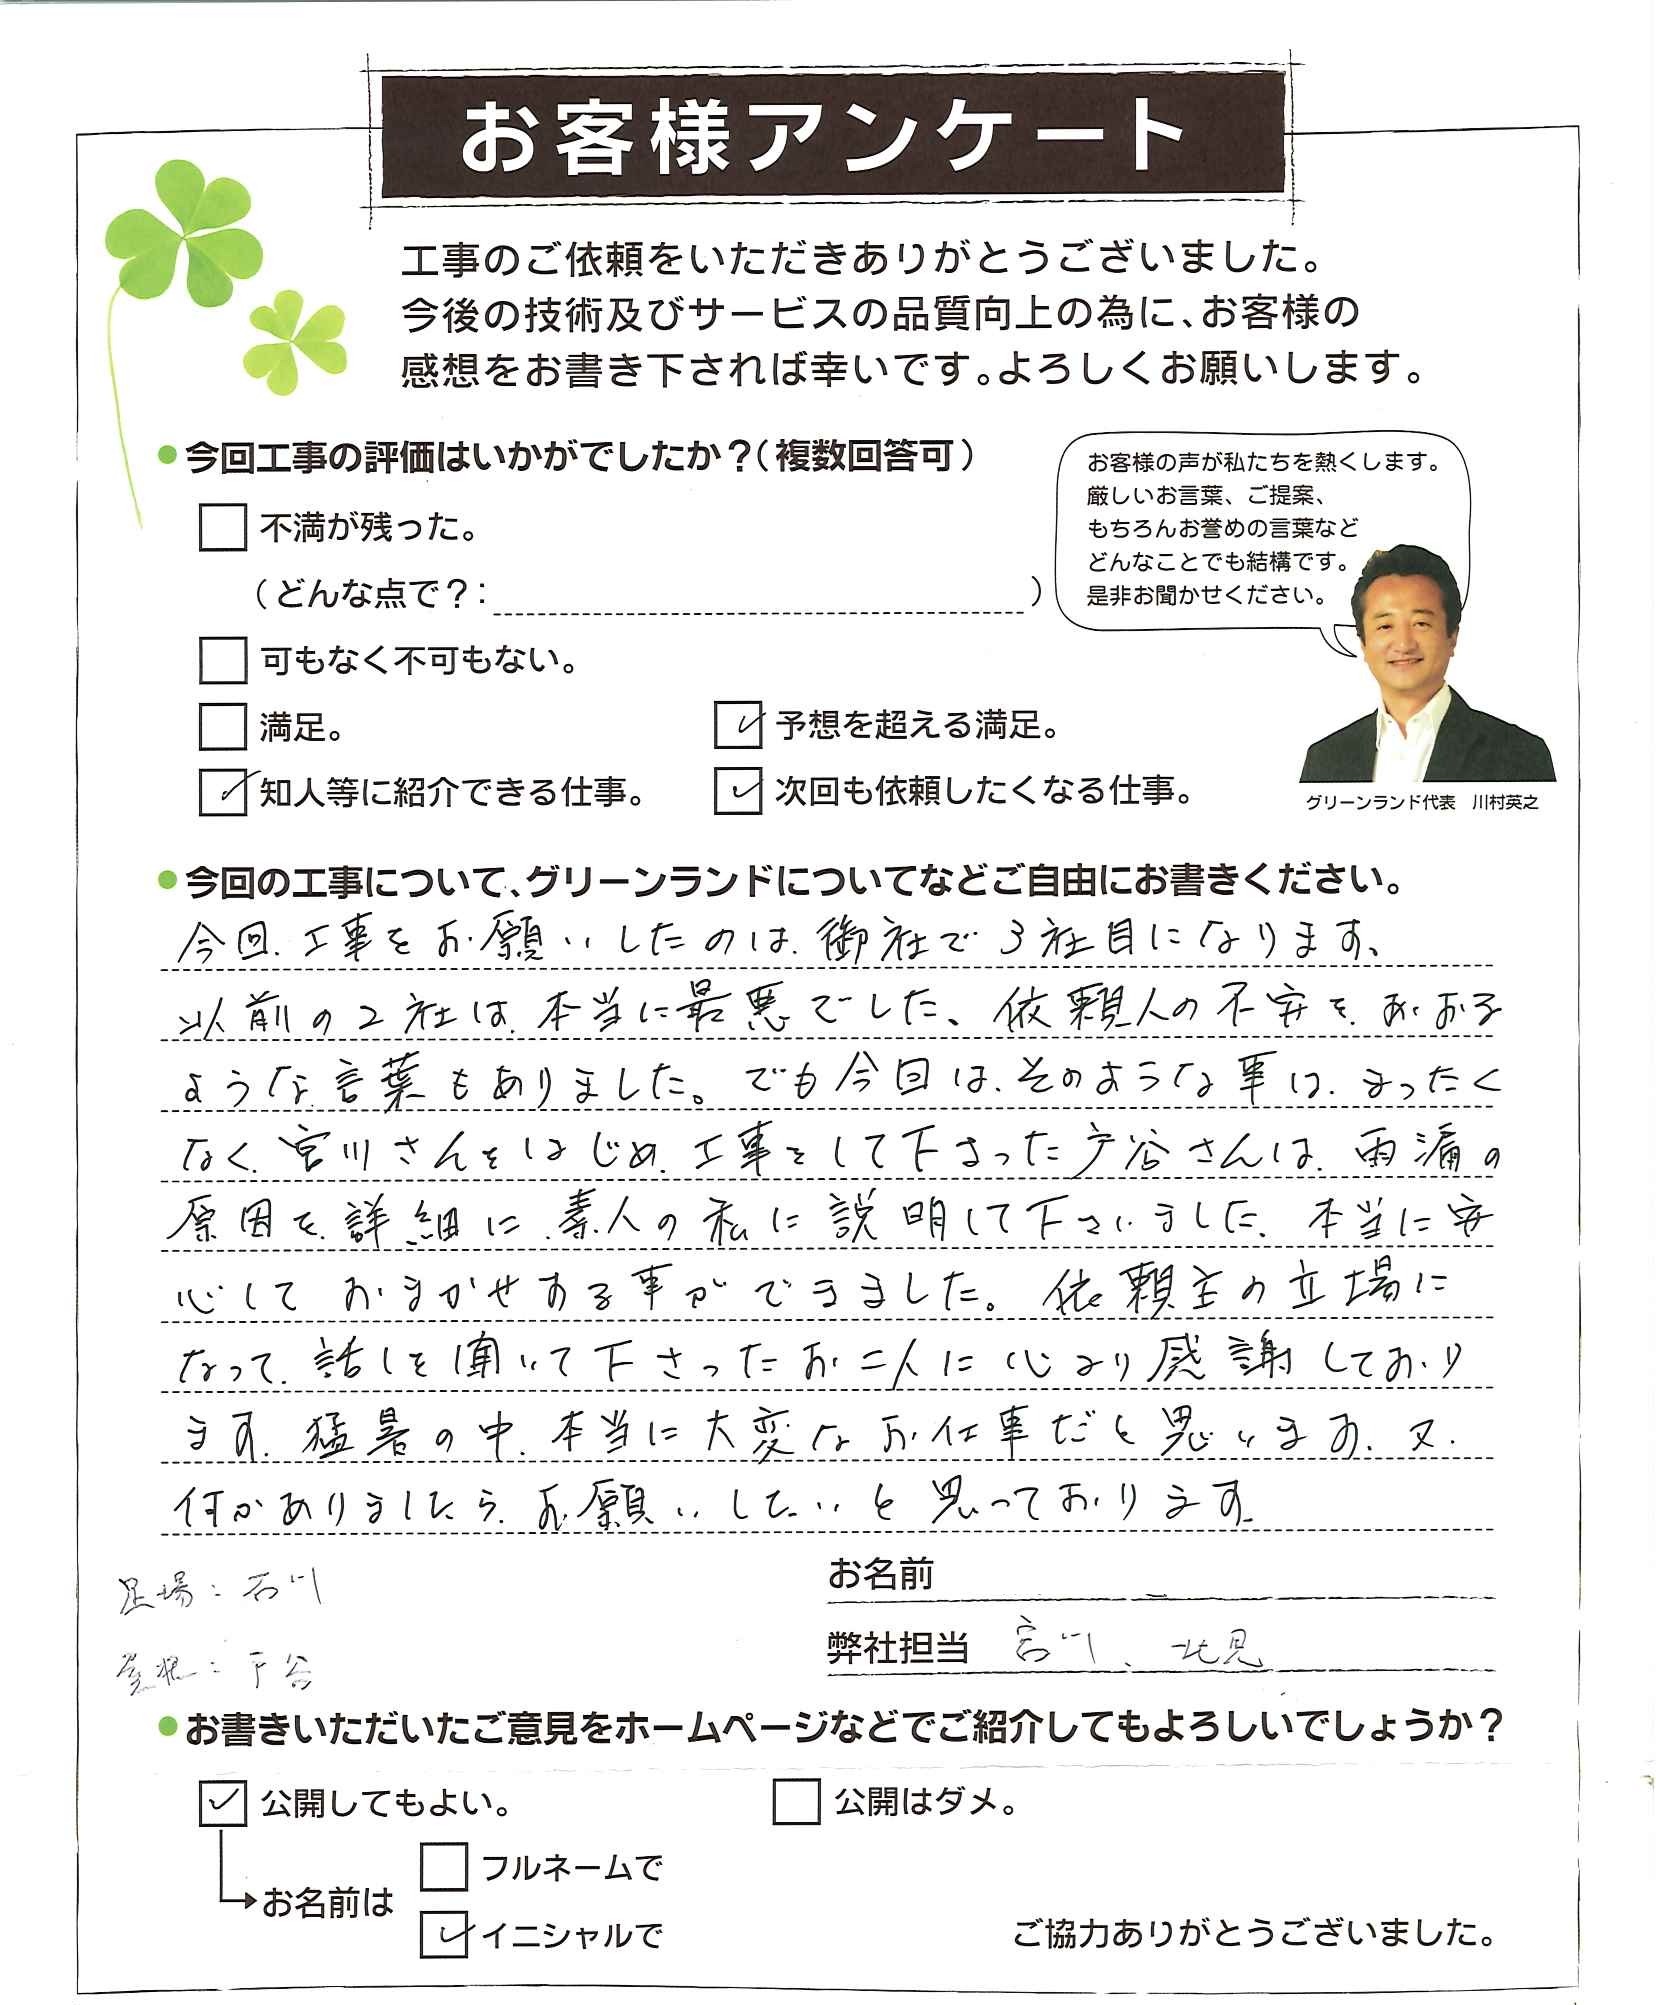 お客様アンケート
工事のご依頼をいただきありがとうございました。
今後の技術及びサービスの品質向上の為に、お客様の
感想をお書き下されば幸いです。よろしくお願いします。
●今回工事の評価はいかがでしたか？(複数回答可)
お客様の声が私たちを熱くします。
厳しいお言葉、ご提案、
もちろんお誉めの言葉など
どんなことでも結構です。
是非お聞かせください。
不満が残った。
(どんな点で？: )
可もなく不可もない。
満足。
予想を超える満足。
知人等に紹介できる仕事。
次回も依頼したくなる仕事。
グリーンランド代表 川村英之
●今回の工事について、グリーンランドについてなどご自由にお書きください。
今回、工事をお願いしたのは、御社で3社目になります、
以前の2社は、本当に最悪でした、依頼人の不安を、あおる
ような言葉もありました。でも今回は、そのような事は、まったく
なく、宮川さんをはじめ、工事をして下さった戸谷さんは、雨漏の
原因を、詳細に、素人の私に説明して下さいました、本当に安
心しておまかせする事ができました。依頼主の立場に
なって、話しを聞いて下さったお二人に心より感謝しており
ます、猛暑の中、本当に大変なお仕事だと思います、又、
何かありましたら、お願いしたいと思っております、
お名前
足場：石川
弊社担当 宮川、北見
屋根：戸谷
●お書きいただいたご意見をホームページなどでご紹介してもよろしいでしょうか？
公開してもよい。
公開はダメ。
フルネームで
お名前は
イニシャルで
ご協力ありがとうございました。